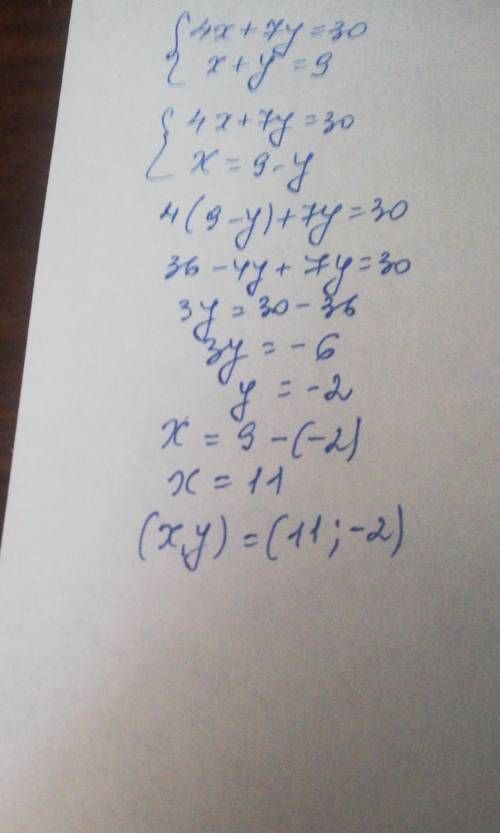 {4x+7y=30
x+y=9
{4x+7y=30
x=9-y
4(9-y)+7y=30
36-4y+7y=30
3y=30-36
3y=-6
y=-2
x=9-(-2)
x=11
(x,y)=(11;-2)